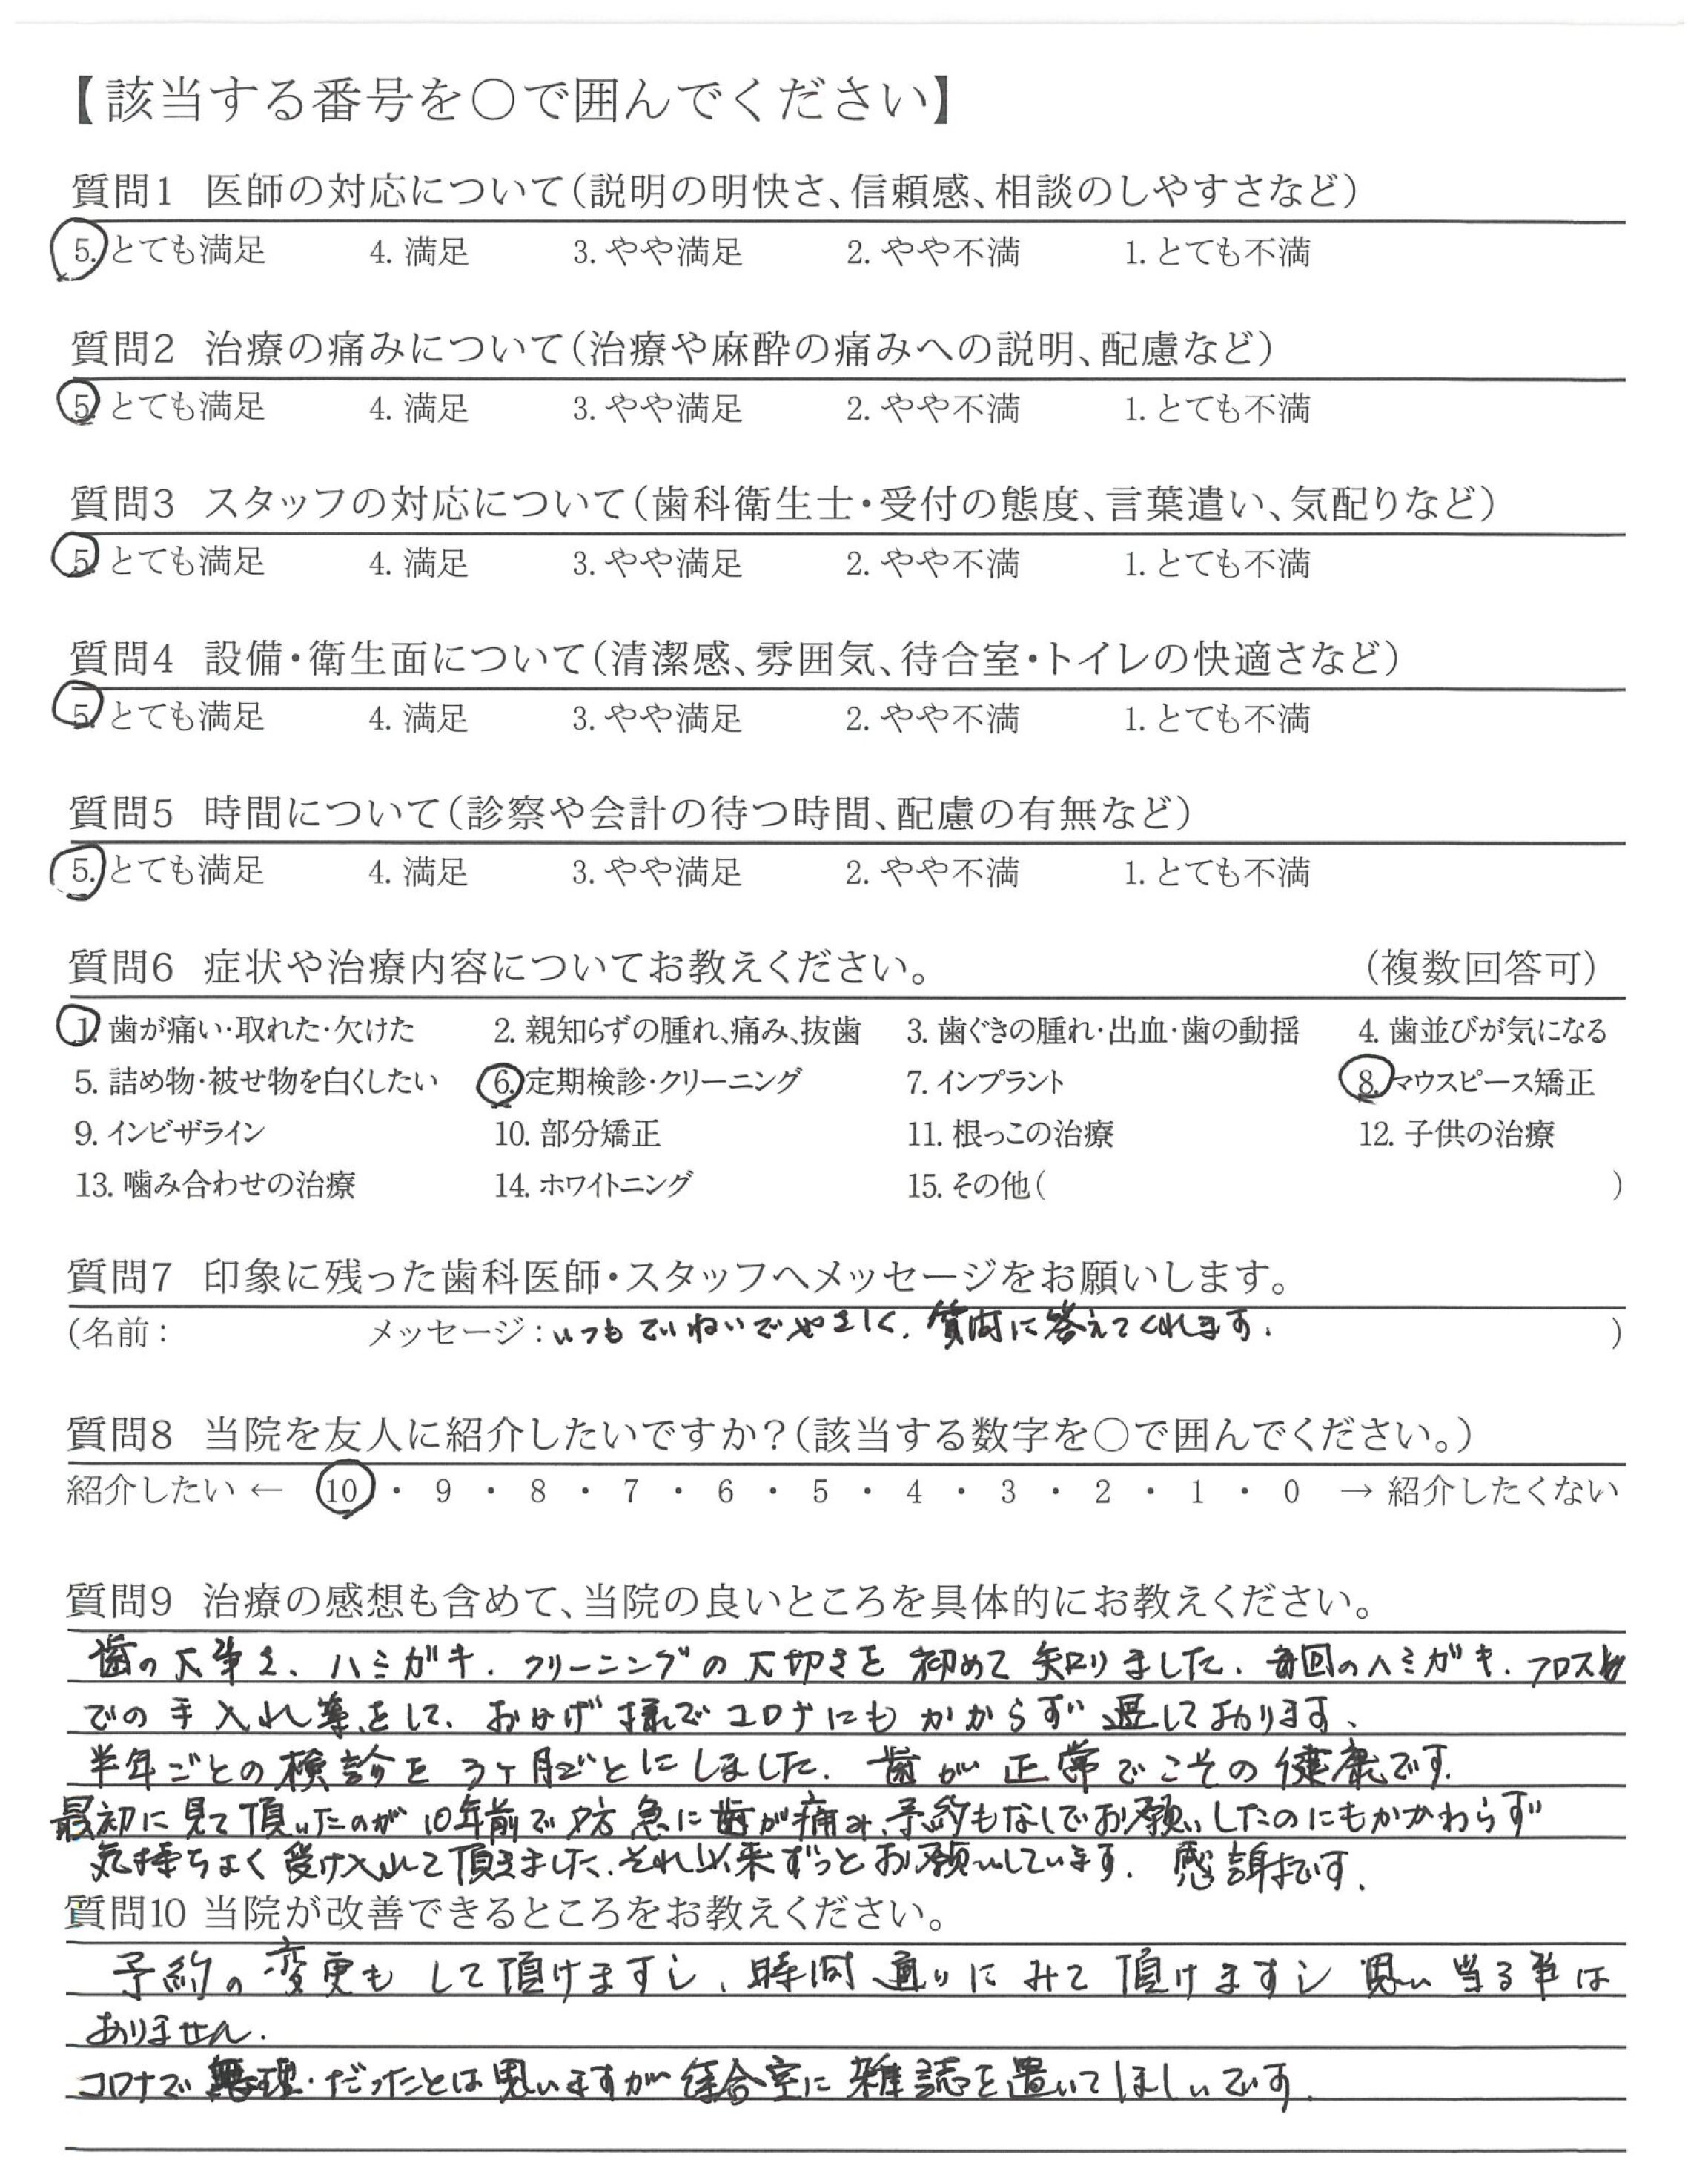 【該当する番号を○で囲んでください】
質問1 医師の対応について(説明の明快さ、信頼感、相談のしやすさなど)
5. とても満足 4. 満足 3. やや満足 2. やや不満 1. とても不満
質問2 治療の痛みについて(治療や麻酔の痛みへの説明、配慮など)
5. とても満足 4. 満足 3. やや満足 2. やや不満 1. とても不満
質問3 スタッフの対応について(歯科衛生士・受付の態度、言葉遣い、気配りなど)
5. とても満足 4. 満足 3. やや満足 2. やや不満 1. とても不満
質問4 設備・衛生面について(清潔感、雰囲気、待合室・トイレの快適さなど)
5. とても満足 4. 満足 3. やや満足 2. やや不満 1. とても不満
質問5 時間について(診察や会計の待つ時間、配慮の有無など)
5. とても満足 4. 満足 3. やや満足 2. やや不満 1. とても不満
質問6 症状や治療内容についてお教えください。 (複数回答可)
1. 歯が痛い・取れた・欠けた 2. 親知らずの腫れ、痛み、抜歯 3. 歯ぐきの腫れ・出血・歯の動揺 4. 歯並びが気になる
5. 詰め物・被せ物を白くしたい 6. 定期検診・クリーニング 7. インプラント 8. マウスピース矯正
9. インビザライン 10. 部分矯正 11. 根っこの治療 12. 子供の治療
13. 噛み合わせの治療 14. ホワイトニング 15. その他( )
質問7 印象に残った歯科医師・スタッフへメッセージをお願いします。
(名前: メッセージ:いつもていねいでやさしく、質問に答えてくれます。 )
質問8 当院を友人に紹介したいですか?(該当する数字を○で囲んでください。)
紹介したい ← 10 ・ 9 ・ 8 ・ 7 ・ 6 ・ 5 ・ 4 ・ 3 ・ 2 ・ 1 ・ 0 → 紹介したくない
質問9 治療の感想も含めて、当院の良いところを具体的にお教えください。
歯の大事さ、ハミガキ、クリーニングの大切さを初めて知りました。毎回のハミガキ、フロス
での手入れ等をして、おかげ様でコロナにもかからず過しております、
半年ごとの検診を3ヶ月ごとにしました。歯が正常でこその健康です。
最初に見て頂いたのが10年前で夕方急に歯が痛み、予約もなしでお願いしたのにもかかわらず
気持ちよく受け入れて頂きました、それ以来ずっとお願いしています。感謝です。
質問10 当院が改善できるところをお教えください。
予約の変更もして頂けますし、時間通りにみて頂けますし思い当る事は
ありません。
コロナで無理だったことは思いますが待合室に雑誌を置いてほしいです。